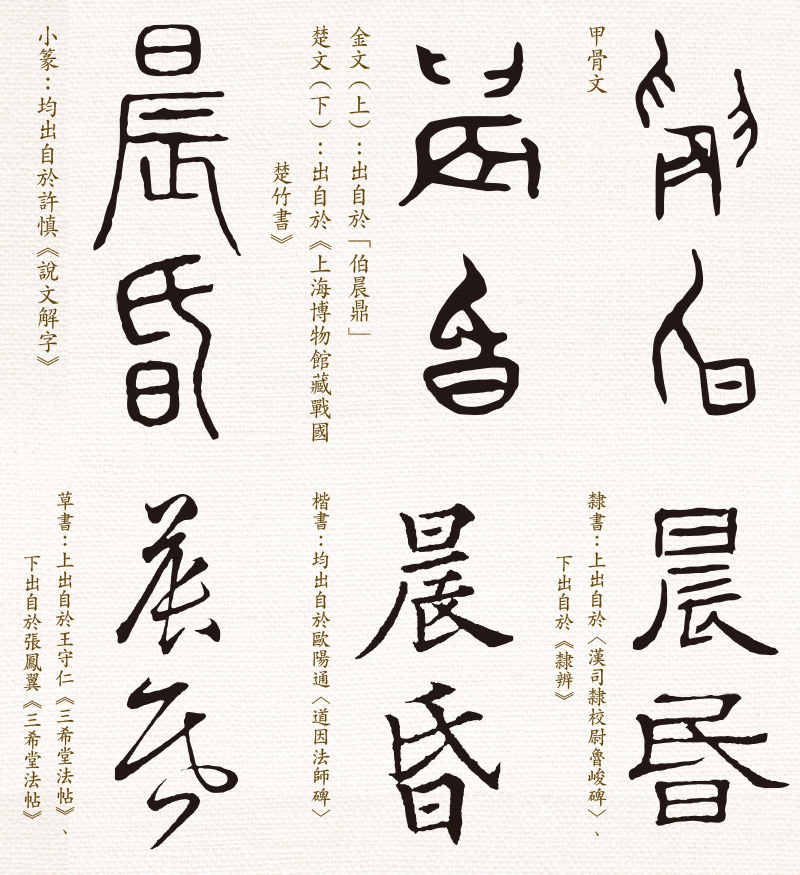 甲骨文
晨
昏
金文（上）：出自於「伯晨鼎」
楚文（下）：出自於《上海博物館藏戰國
楚竹書》
晨
昏
小篆：均出自於許慎《說文解字》
晨
昏
隸書：上出自於〈漢司隸校尉魯峻碑〉、
下出自於《隸辨》
晨
昏
楷書：均出自於歐陽通〈道因法師碑〉
晨
昏
草書：上出自於王守仁《三希堂法帖》、
下出自於張鳳翼《三希堂法帖》
晨
昏